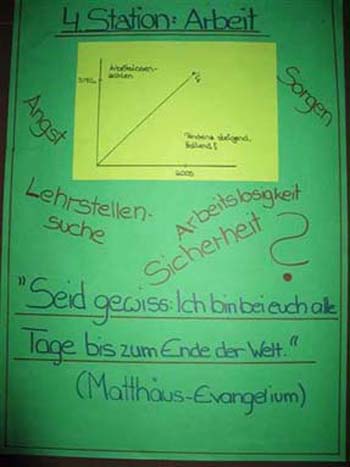 4. Station: Arbeit
Arbeitslosen-
zahlen
Tendenz steigend,
2005
Angst
Sorgen
Lehrstellen-
suche
Arbeitslosigkeit
Sicherheit ?
"Seid gewiss: Ich bin bei euch alle
Tage bis zum Ende der Welt."
(Matthäus-Evangelium)